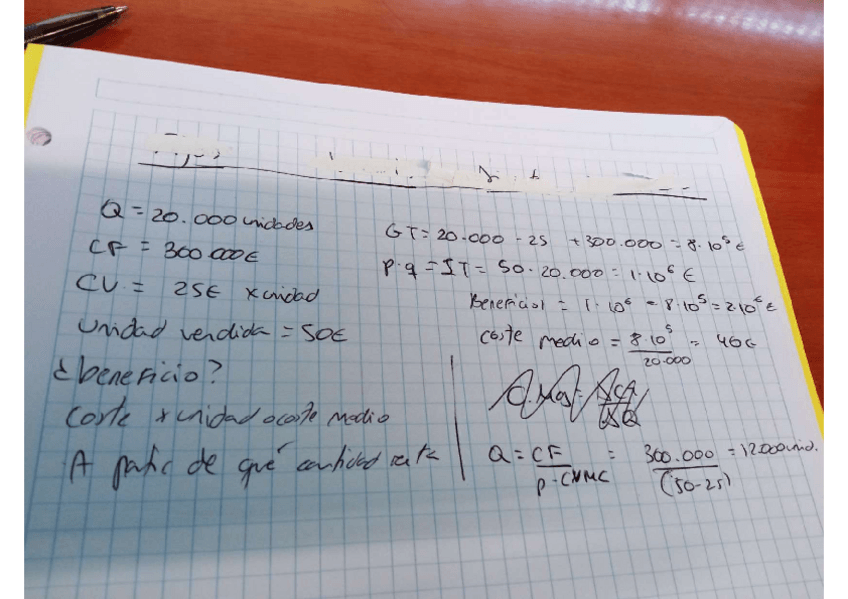 Q = 20.000 unidades
CF = 300.000€
CU = 25€ x unidad
Unidad vendida = 50€
¿beneficio?
Coste x unidad o coste medio
A partir de qué cantidad renta
GT = 20.000 · 25 + 300.000 = 8·10⁵ €
p·q = IT = 50 · 20.000 = 1·10⁶ €
Beneficio = 1·10⁶ - 8·10⁵ = 2·10⁵ €
Coste medio = 8·10⁵ / 20.000 = 40€
Q = CF / p-CVMC = 300.000 / (50-25) = 12.000 unid.